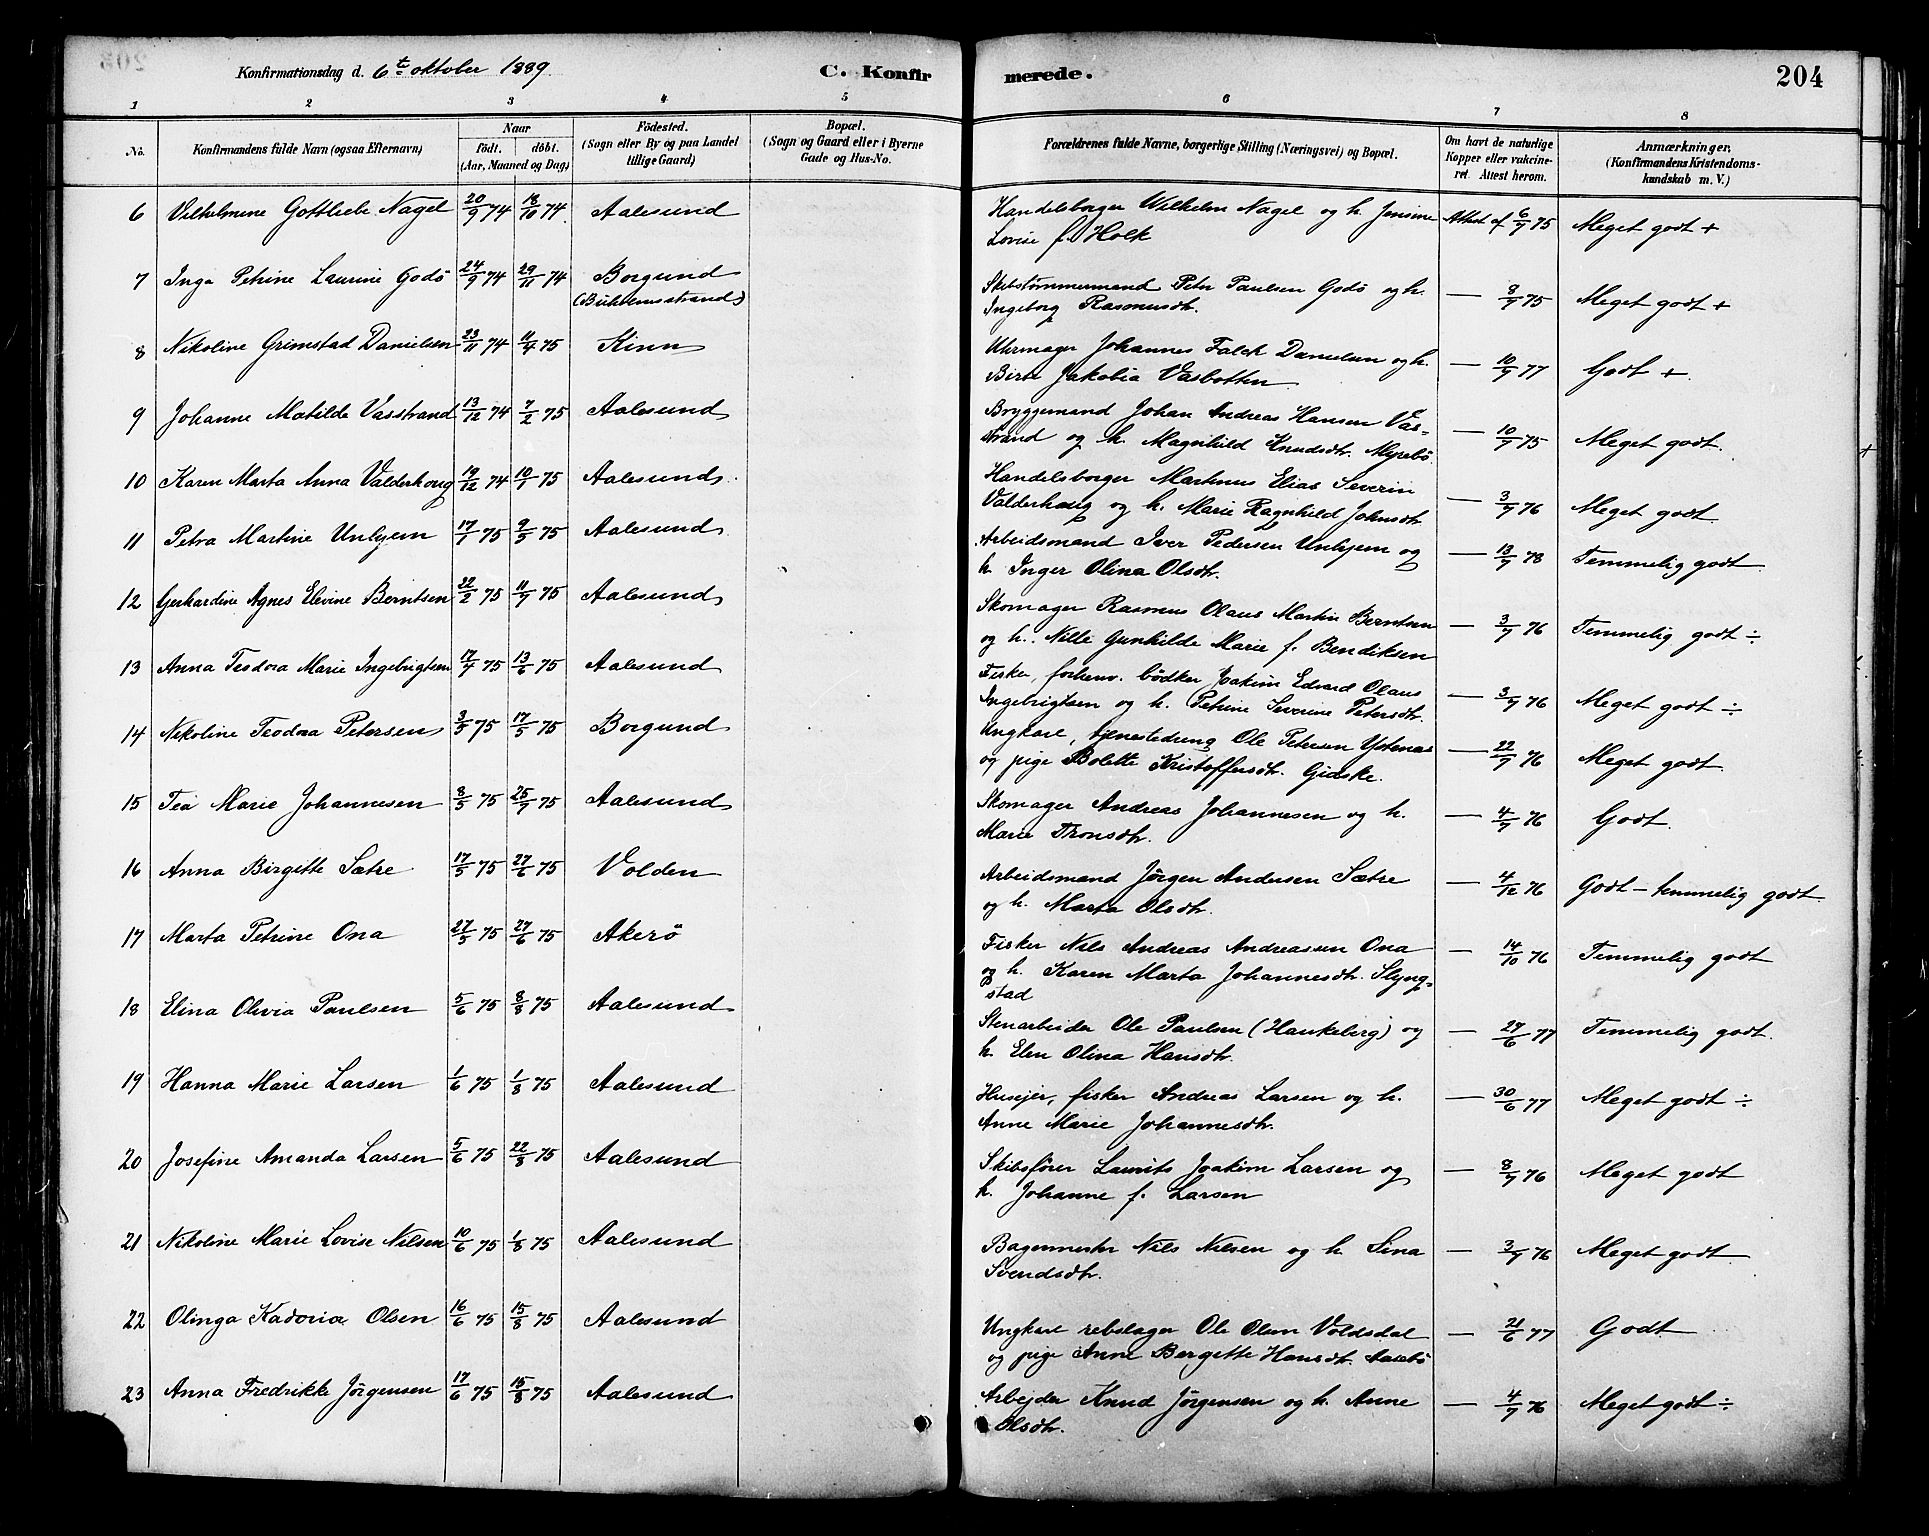 Konfirmationsdag d. 6te oktober 1889. C. Konfirmerede. 204
1 2 3 4 5 6 7 8
No. Konfirmandens fulde Navn (ogsaa Efternavn) Naar födt. döbt. (Aar, Maaned og Dag) Födested. (Sogn eller By og paa Landet tillige Gaard) Bopæl. (Sogn og Gaard eller i Byerne Gade og Hus-No. Forældrenes fulde Navne, borgerlige Stilling (Næringsvei) og Bopæl. Om havt de naturlige Kopper eller vakcineret. Attest herom. Anmærkninger, (Konfirmandens Kristendomskundskab m. V.)
6 Vilhelmine Gottliebe Nagel 20/9 74 18/10 74 Aalesund Handelsborger Wilhelm Nagel og h. Jensine Lovise f. Holk Attest af 6/7 75 Meget godt +
7 Inga Petrine Laurine Godö 24/9 74 29/11 74 Borgund Skibstömmermand Petr Paulsen Godö og h. Ingeborg Rasmusdtr. — 8/7 75 Meget godt +
8 Nikoline Grimstad Danielsen 23/11 74 11/4 75 Kinn Uhrmager Johannes Falch Danielsen og h. Birte Jakobia Vasbotten — 10/7 77 Godt +
9 Johanne Matilde Vasstrand 13/12 74 7/2 75 Aalesund Bryggemand Johan Andreas Hansen Vasstrand og h. Magnhild Knudsdtr. Myrebö — 10/7 75 Meget godt.
10 Karen Marta Anna Valderhoug 19/12 74 10/1 75 Aalesund Handelsborger Martinus Elias Severin Valderhaug og h. Marie Ragnhild Johnsdtr — 3/7 76 Meget godt
11 Petra Martine Unhjem 17/1 75 9/5 75 Aalesund Arbeidsmand Iver Pedersen Unhjem og h. Inger Olina Olsdtr. — 13/7 78 Temmelig godt
12 Gerhardine Agnes Elevine Berntsen 22/2 75 11/7 75 Aalesund Skomager Rasmus Olaus Martin Berntsen og h. Nille Gunhilde Marie f. Bendiksen — 3/7 76 Temmelig godt ÷
13 Anna Teodora Marie Ingebrigtsen 17/4 75 13/6 75 Aalesund Fisker, forhenv. bödker Joakim Edvard Olaus Ingebrigtsen og h. Petrine Severine Petersdtr. — 3/7 76 Meget godt ÷
14 Nikoline Teodora Petersen 3/5 75 17/5 75 Borgund Ungkarl, tjenestedreng Ole Petersen Ystenæs og pige Bolette Kristoffersdtr. Gidske. — 22/7 76 Meget godt
15 Tea Marie Johannesen 8/5 75 25/7 75 Aalesund Skomager Andreas Johannesen og h. Marie Tronsdtr. — 4/7 76 Godt.
16 Anna Birgitte Sætre 17/5 75 27/6 75 Volden Arbeidsmand Jörgen Andersen Sætre og h. Marta Olsdtr. — 4/12 76 Godt – temmelig godt
17 Marta Petrine Ona 27/5 75 27/6 75 Akerö Fisker Nils Andreas Andreassen Ona og h. Karen Marta Johannesdtr. Slyngstad — 14/10 76 Temmelig godt
18 Elina Olivia Paulsen 5/6 75 8/8 75 Aalesund Stenarbeider Ole Paulsen (Haukeberg) og h. Elen Olina Hansdtr. — 27/6 77 Temmelig godt.
19 Hanna Marie Larsen 1/6 75 1/8 75 Aalesund Husejer, fisker Andreas Larsen og h. Anne Marie Johannesdtr. — 30/6 77 Meget godt ÷
20 Josefine Amanda Larsen 5/6 75 22/8 75 Aalesund Skibsförer Laurits Joakim Larsen og h. Johanne f. Larsen — 8/7 76 Meget godt
21 Nikoline Marie Lovise Nilsen 10/6 75 1/8 75 Aalesund Bagermester Nils Nilsen og h. Sina Svendsdtr. — 3/7 76 Meget godt
22 Olinga Kadoria Olsen 16/6 75 15/8 75 Aalesund Ungkarl rebslager Ole Olsen Voldsdal og pige Anne Bergette Hansdtr. Aasebö — 21/6 77 Godt
23 Anna Fredrikke Jörgensen 17/6 75 15/8 75 Aalesund Arbejder Knud Jörgensen og h. Anne Olsdtr. — 4/7 76 Meget godt ÷